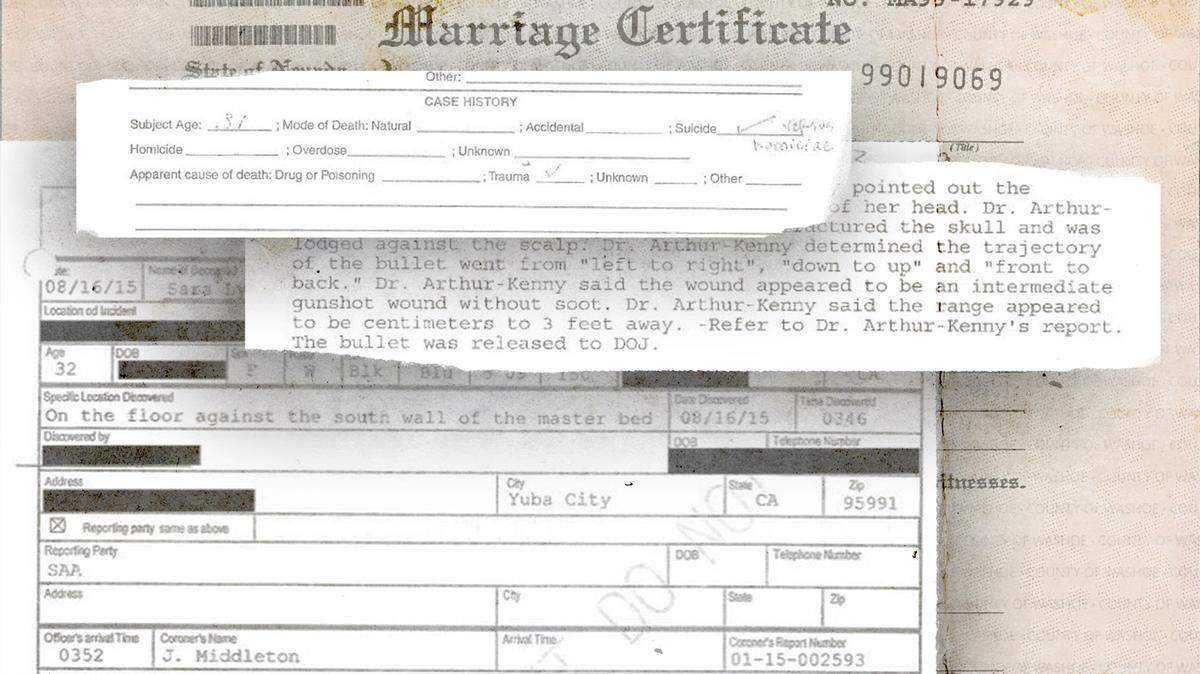 NO. MA99-17929
Marriage Certificate
State of Nevada
99019069
Other:
CASE HISTORY
Subject Age: 31 ; Mode of Death: Natural ; Accidental ; Suicide ✓ versus
homicide
Homicide ; Overdose ; Unknown
Apparent cause of death: Drug or Poisoning ; Trauma ✓ ; Unknown ; Other
(Title)
pointed out the
of her head. Dr. Arthur-
fractured the skull and was
lodged against the scalp. Dr. Arthur-Kenny determined the trajectory
of the bullet went from "left to right", "down to up" and "front to
back." Dr. Arthur-Kenny said the wound appeared to be an intermediate
gunshot wound without soot. Dr. Arthur-Kenny said the range appeared
to be centimeters to 3 feet away. -Refer to Dr. Arthur-Kenny's report.
The bullet was released to DOJ.
Name of Deceased
08/16/15 Sara Ly
Location od Incident
Age DOB
32 F W Blk Blu 5'09 150 CA
Specific Location Discovered Date Discovered Time Discovered
On the floor against the south wall of the master bed 08/16/15 0346
Discovered by DOB Telephone Number
Address City State Zip
Yuba City CA 95991
Reporting party same as above
Reporting Party DOB Telephone Number
SAA
Address City State Zip
DO NO
Officer's arrival Time Coroner's Name Arrival Time Coroner's Report Number
0352 J. Middleton 01-15-002593
itnesses.
COUNTY OF WASHOE